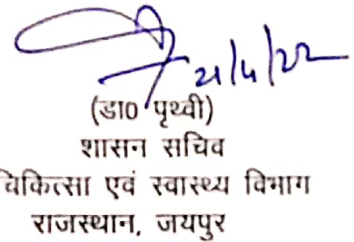 21/4/22
(डा0 पृथ्वी)
शासन सचिव
चिकित्सा एवं स्वास्थ्य विभाग
राजस्थान, जयपुर